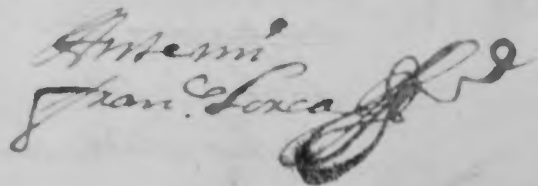 Antemi
Franc.º Lorca